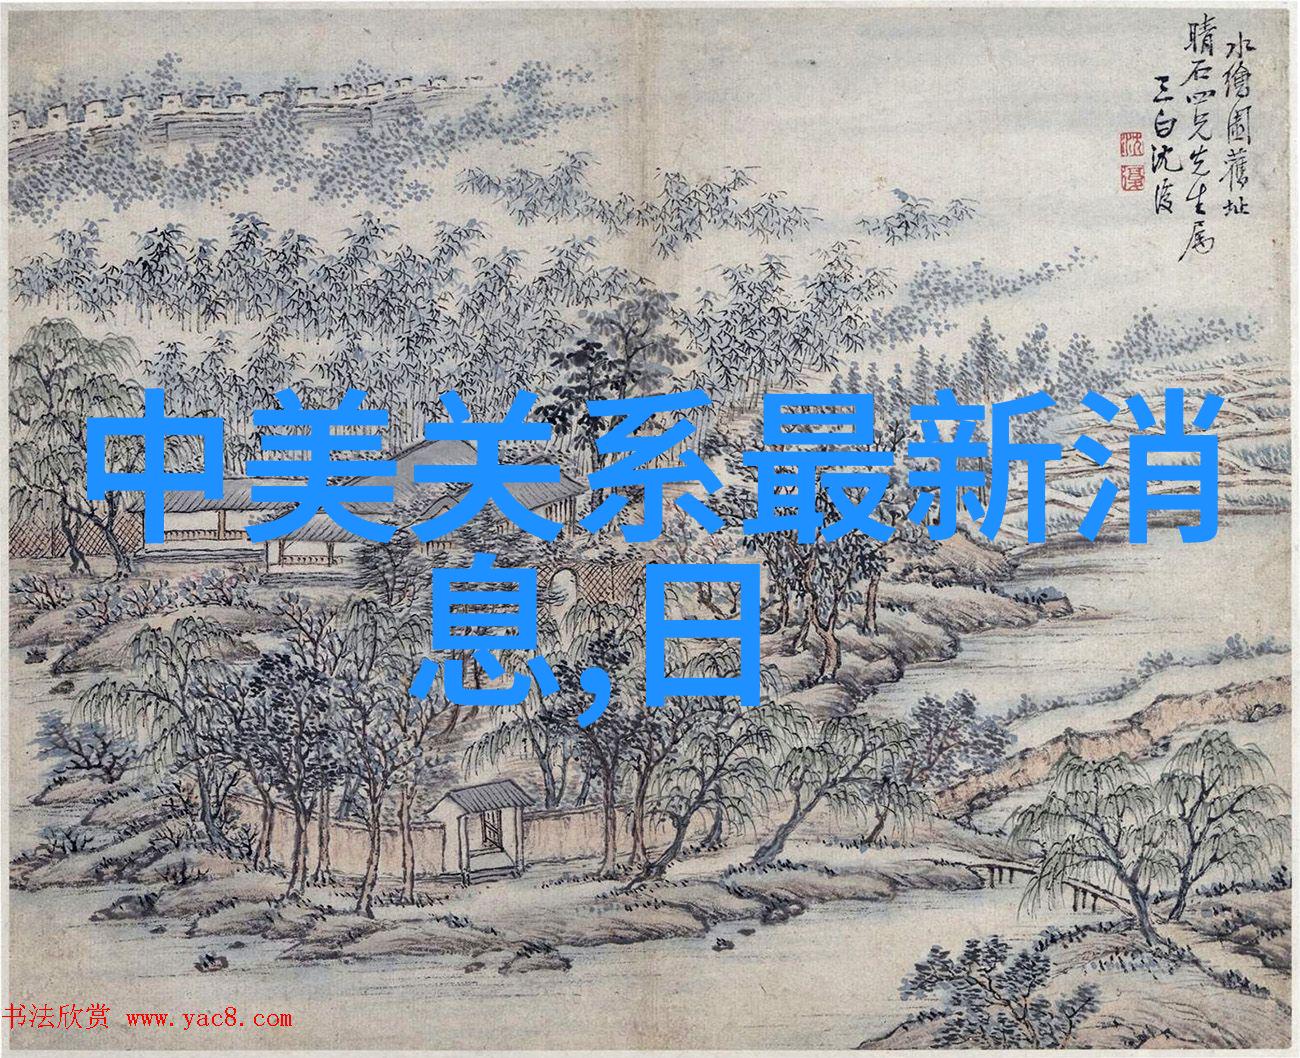 水繪園舊址
晴石四兄先生属
三白沈复
中美关系最新消
息,日
书法欣赏 www.yac8.com